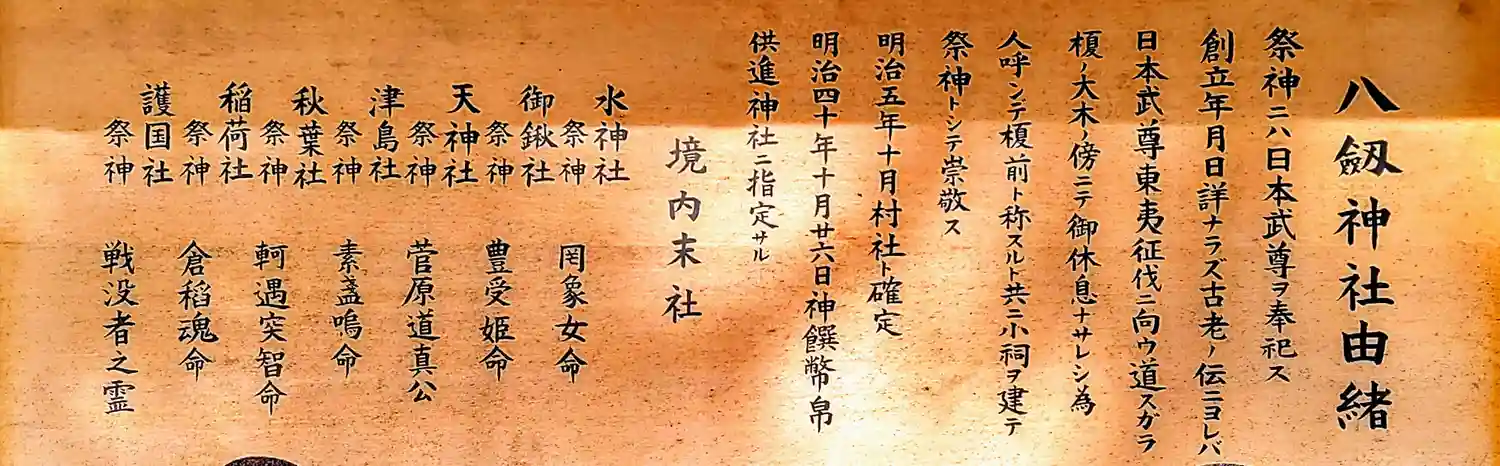 八劔神社由緒
祭神ニハ日本武尊ヲ奉祀ス
創立年月日詳ナラズ古老ノ伝ニヨレバ
日本武尊東夷征伐ニ向ウ道スガラ
榎ノ大木ノ傍ニテ御休息ナサレシ為
人呼ンデ榎前ト称スルト共ニ小祠ヲ建テ
祭神トシテ崇敬ス
明治五年十月村社ト確定
明治四十年十月廿六日神饌幣帛
供進神社ニ指定サル
境内末社
水神社
祭神 罔象女命
御鍬社
祭神 豊受姫命
天神社
祭神 菅原道真公
津島社
祭神 素盞嗚命
秋葉社
祭神 軻遇突智命
稲荷社
祭神 倉稻魂命
護国社
祭神 戦没者之霊